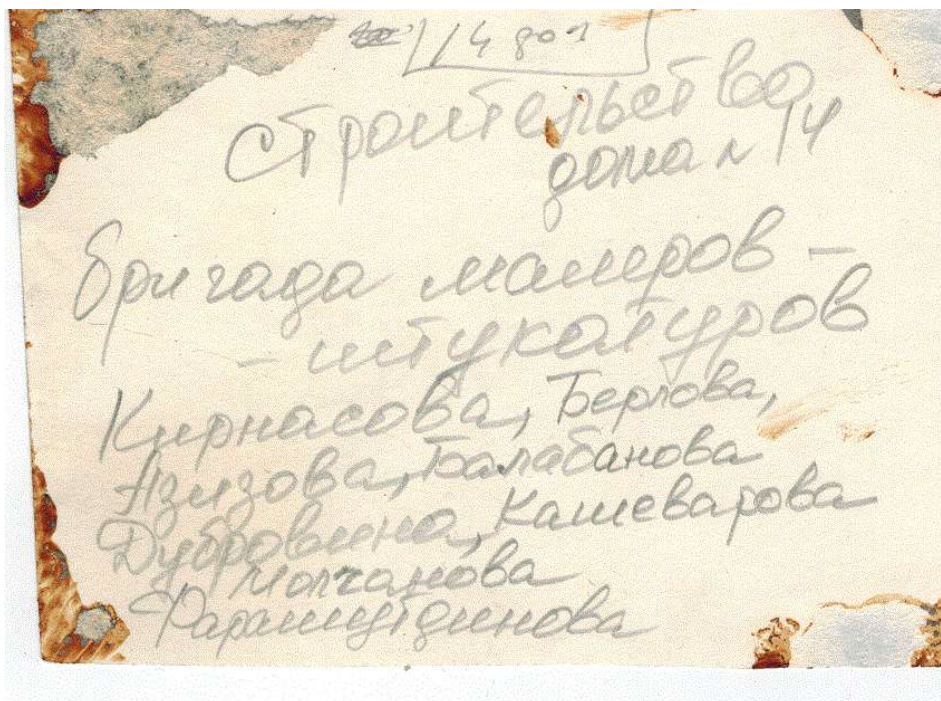 14 дол
строительство
дома N 14
бригада маляров -
- штукатуров
Кирнасова, Берлова,
Азизова, Балабанова
Дубровина, Кашеварова
Молчанова